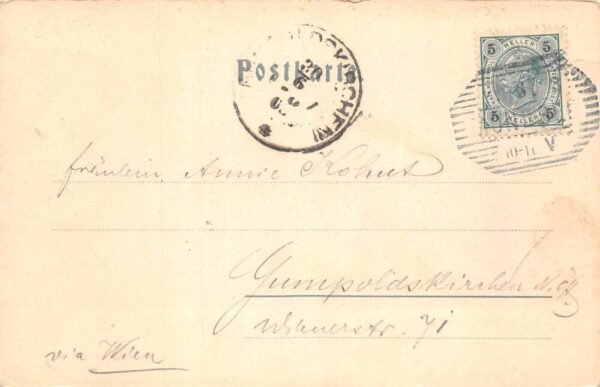 Postkarte
5 HELLER 5
5 HELLER 5
10-11 V
Fräulein Annie Kohut
Gumpoldskirchen N.Ö.
Wienerstr. 71
via Wien